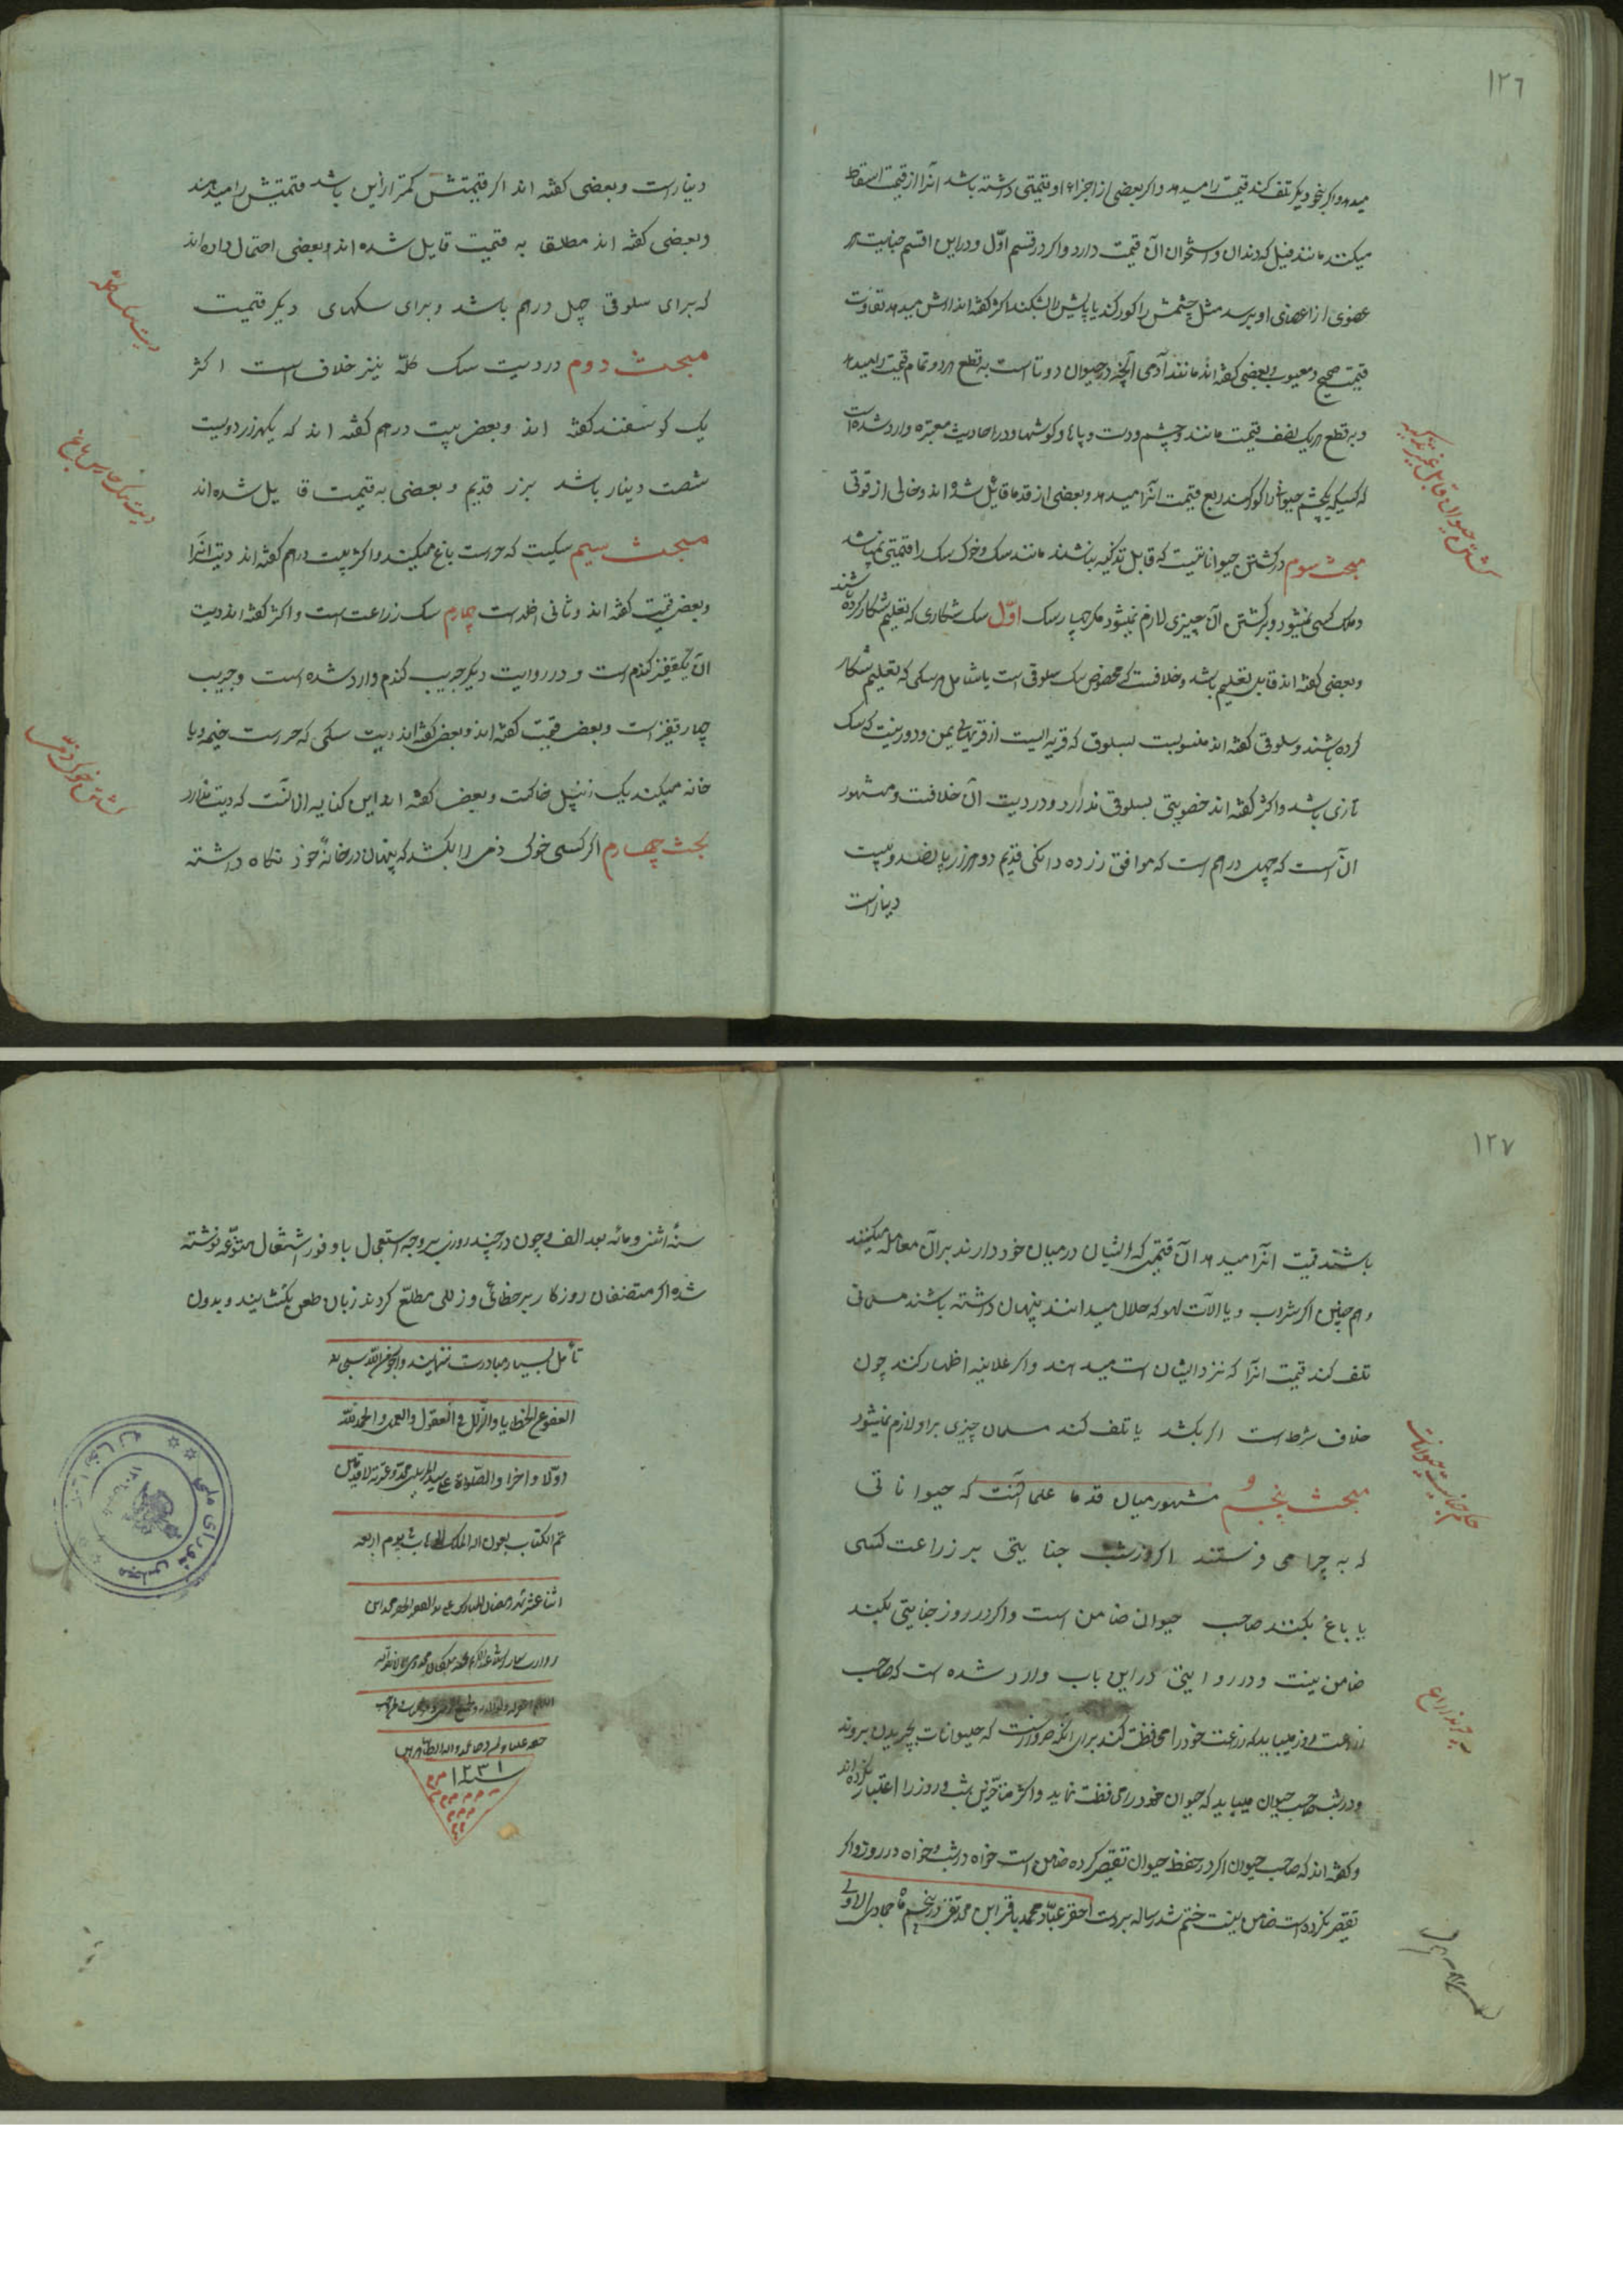 ١٢٦
میدهد و اگر بنحو دیگر تلف کند قیمت را میدهد و اگر بعضی از اجزاء او قیمتی داشته باشد انرا از قیمت اسقاط
میکنند مانند فیل که دندان و استخوان آن قیمت دارد و اگر در قسم اوّل و در این اقسم جنایت بر
عضوی از اعضای او برسد مثل چشمش را کور کند یا پایش را بشکند اکثر گفته اند ارش میدهد تفاوت
قیمت صحیح و معیوب و بعضی گفته اند مانند آدمی آنچه در حیوان دو تا است به قطع هر دو تمام قیمت را میدهد
و به قطع هر یک نصف قیمت مانند دو چشم و دست و پاها و گوشها و در احادیث معتبره وارد شده است
که کسیکه یکچشم حیوانی را کور کند ربع قیمت انرا میدهد و بعضی از قدما قایل شده اند و خالی از قوتی
مبحث سوم در کشتن حیواناتیست که قابل تذکیه نباشند مانند سک و خوک سک را قیمتی نمیباشد
و ملک کسی نمیشود و بر کشتن آن چیزی لازم نمیشود مکر چهار سک اوّل سک شکاری که تعلیم شکار کرده باشند
و بعضی گفته اند قابل تعلیم باشد و خلافست که مخصوص سک سلوقی است یا شامل هر سکی که تعلیم شکار
کرده باشند و سلوقی گفته اند منسوبست بسلوق که قریه ایست از قریه های یمن و دور نیست که سک
تازی باشد و اکثر گفته اند خصوصیتی بسلوق ندارد و در دیت آن خلافست و مشهور
آن است که چهل درهم است که موافق زر ده دانکی قدیم دو هزار و پانصد و بیست
دینار است
کشتن حیوان قابل غیر تذکیه
دینار است و بعضی گفته اند اکر قیمتش کمتر ازاین باشد قیمتش را میدهند
و بعضی گفته اند مطلقا به قیمت قایل شده اند و بعضی احتمال داده اند
که برای سلوقی چهل درهم باشد و برای سکهای دیکر قیمت
مبحث دوم در دیت سک کلّه نیز خلاف است اکثر
یک کوسفند کفته اند و بعضی بیست درهم کفته اند که یکهزار و دویست
شصت دینار باشد بزر قدیم و بعضی به قیمت قایل شده اند
مبحث سیم سکیست که حراست باغ میکند و اکثر بیست درهم کفته اند دیت انرا
و بعضی قیمت کفته اند و ثانی اظهر است چهارم سک زراعت است و اکثر کفته اند دیت
آن یکقفیز کندم است و در روایت دیکر جریب کندم وارد شده است و جریب
چهار قفیز است و بعضی قیمت کفته اند و بعضی کفته اند دیت سکی که حراست خیمه و یا
خانه میکند یک زنبیل خاکست و بعضی کفته اند این کنایه از آنست که دیت ندارد
بحث چهارم اکر کسی خوک ذمی را بکشد که پنهان در خانهٔ خود نکاه داشته
دیت سک کلّه
دیت سک حارس باغ
کشتن خوک ذمّی
١٢٧
باشند قیمت انرا میدهد آن قیمتی که ایشان در میان خود دارند بر آن معامله میکنند
و هم چنین اکر شراب و یا الآت لهو که حلال میدانند پنهان داشته باشند مسلمانی
تلف کند قیمت انرا که نزد ایشان است میدهند و اکر علانیه اظهار کند چون
خلاف شرط است اکر بکشد یا تلف کند مسلمان چیزی بر او لازم نمیشود
مبحث پنجم مشهور میان قدما علما آنست که حیواناتی
که به چرا می فرستند اکر در شب جنایتی بر زراعت کسی
یا باغ بکنند صاحب حیوان ضامن است و اکر در روز جنایتی بکند
ضامن نیست و در روایتی در این باب وارد شده است که صاحب
زراعت روز میباید که زراعت خود را محافظت کند برای آنکه ضرور است که حیوانات بچریدن بروند
و در شب صاحب حیوان میباید که حیوان خود را محافظت نماید و اکثر متاخرین شب و روز را اعتبار نکرده اند
و کفته اند که صاحب حیوان اکر در حفظ حیوان تقصیر کرده ضامن است خواه در شب و خواه در روز و اکر
تقصیر نکرده است ضامن نیست ختم شد رساله بر دست احقر عباد محمد باقر ابن محمد تقی در پنجم ماه جمادی الاولی
حکم جنایت حیوانات
سنهٔ اثنی و مائه بعد الف و چون در چند روزی بر وجه استعجال با وفور اشتغال متنوّعه نوشته
شده اکر متصفان روزکار بر خطائی و زللی مطلّع کردند زبان طعن نکشایند و بدون
تأمل بسیار مبادرت ننمایند وارجو من اللّه سبحانه
العفو عن الخطایا والزّلل فی العقول والعمد والحمد للّه
اوّلا واخرا والصّلوة علی سید المرسلین محمّد وعترته الاقدسین
تم الکتاب بعون الملک الوهاب یوم اربعه
اثنا عشر شهر رمضان المبارک
سنه ١٢٣١